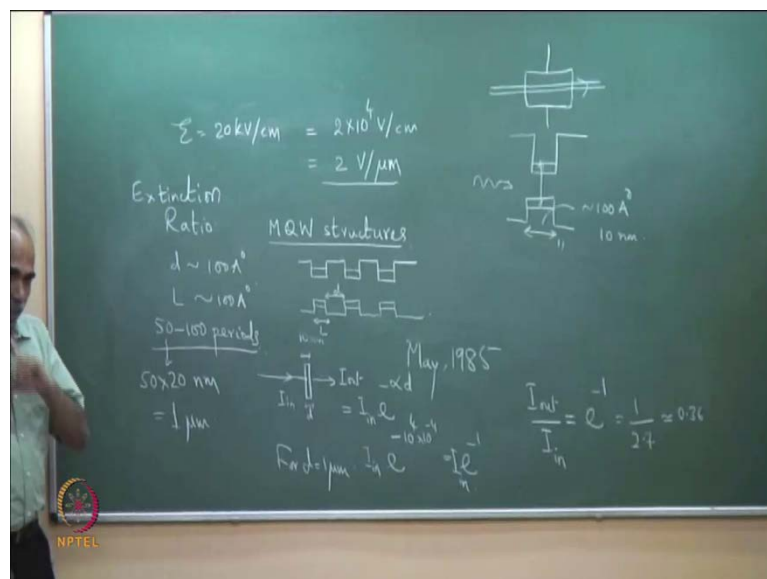 ℰ = 20kV/cm = 2×10⁴ V/cm
= 2 V/μm
Extinction
Ratio
MQW structures
d ~ 100A°
L ~ 100A°
50–100 periods
50×20 nm
= 1 μm
d
L
~100A°
10 nm.
May, 1985
I_in
d
I_out
= I_in e^{-αd}
For d=1μm. I_in e^{-10⁴×10⁻⁴} = I_in e^{-1}
I_out / I_in = e^{-1} = 1/2.7 ≃ 0.36
NPTEL